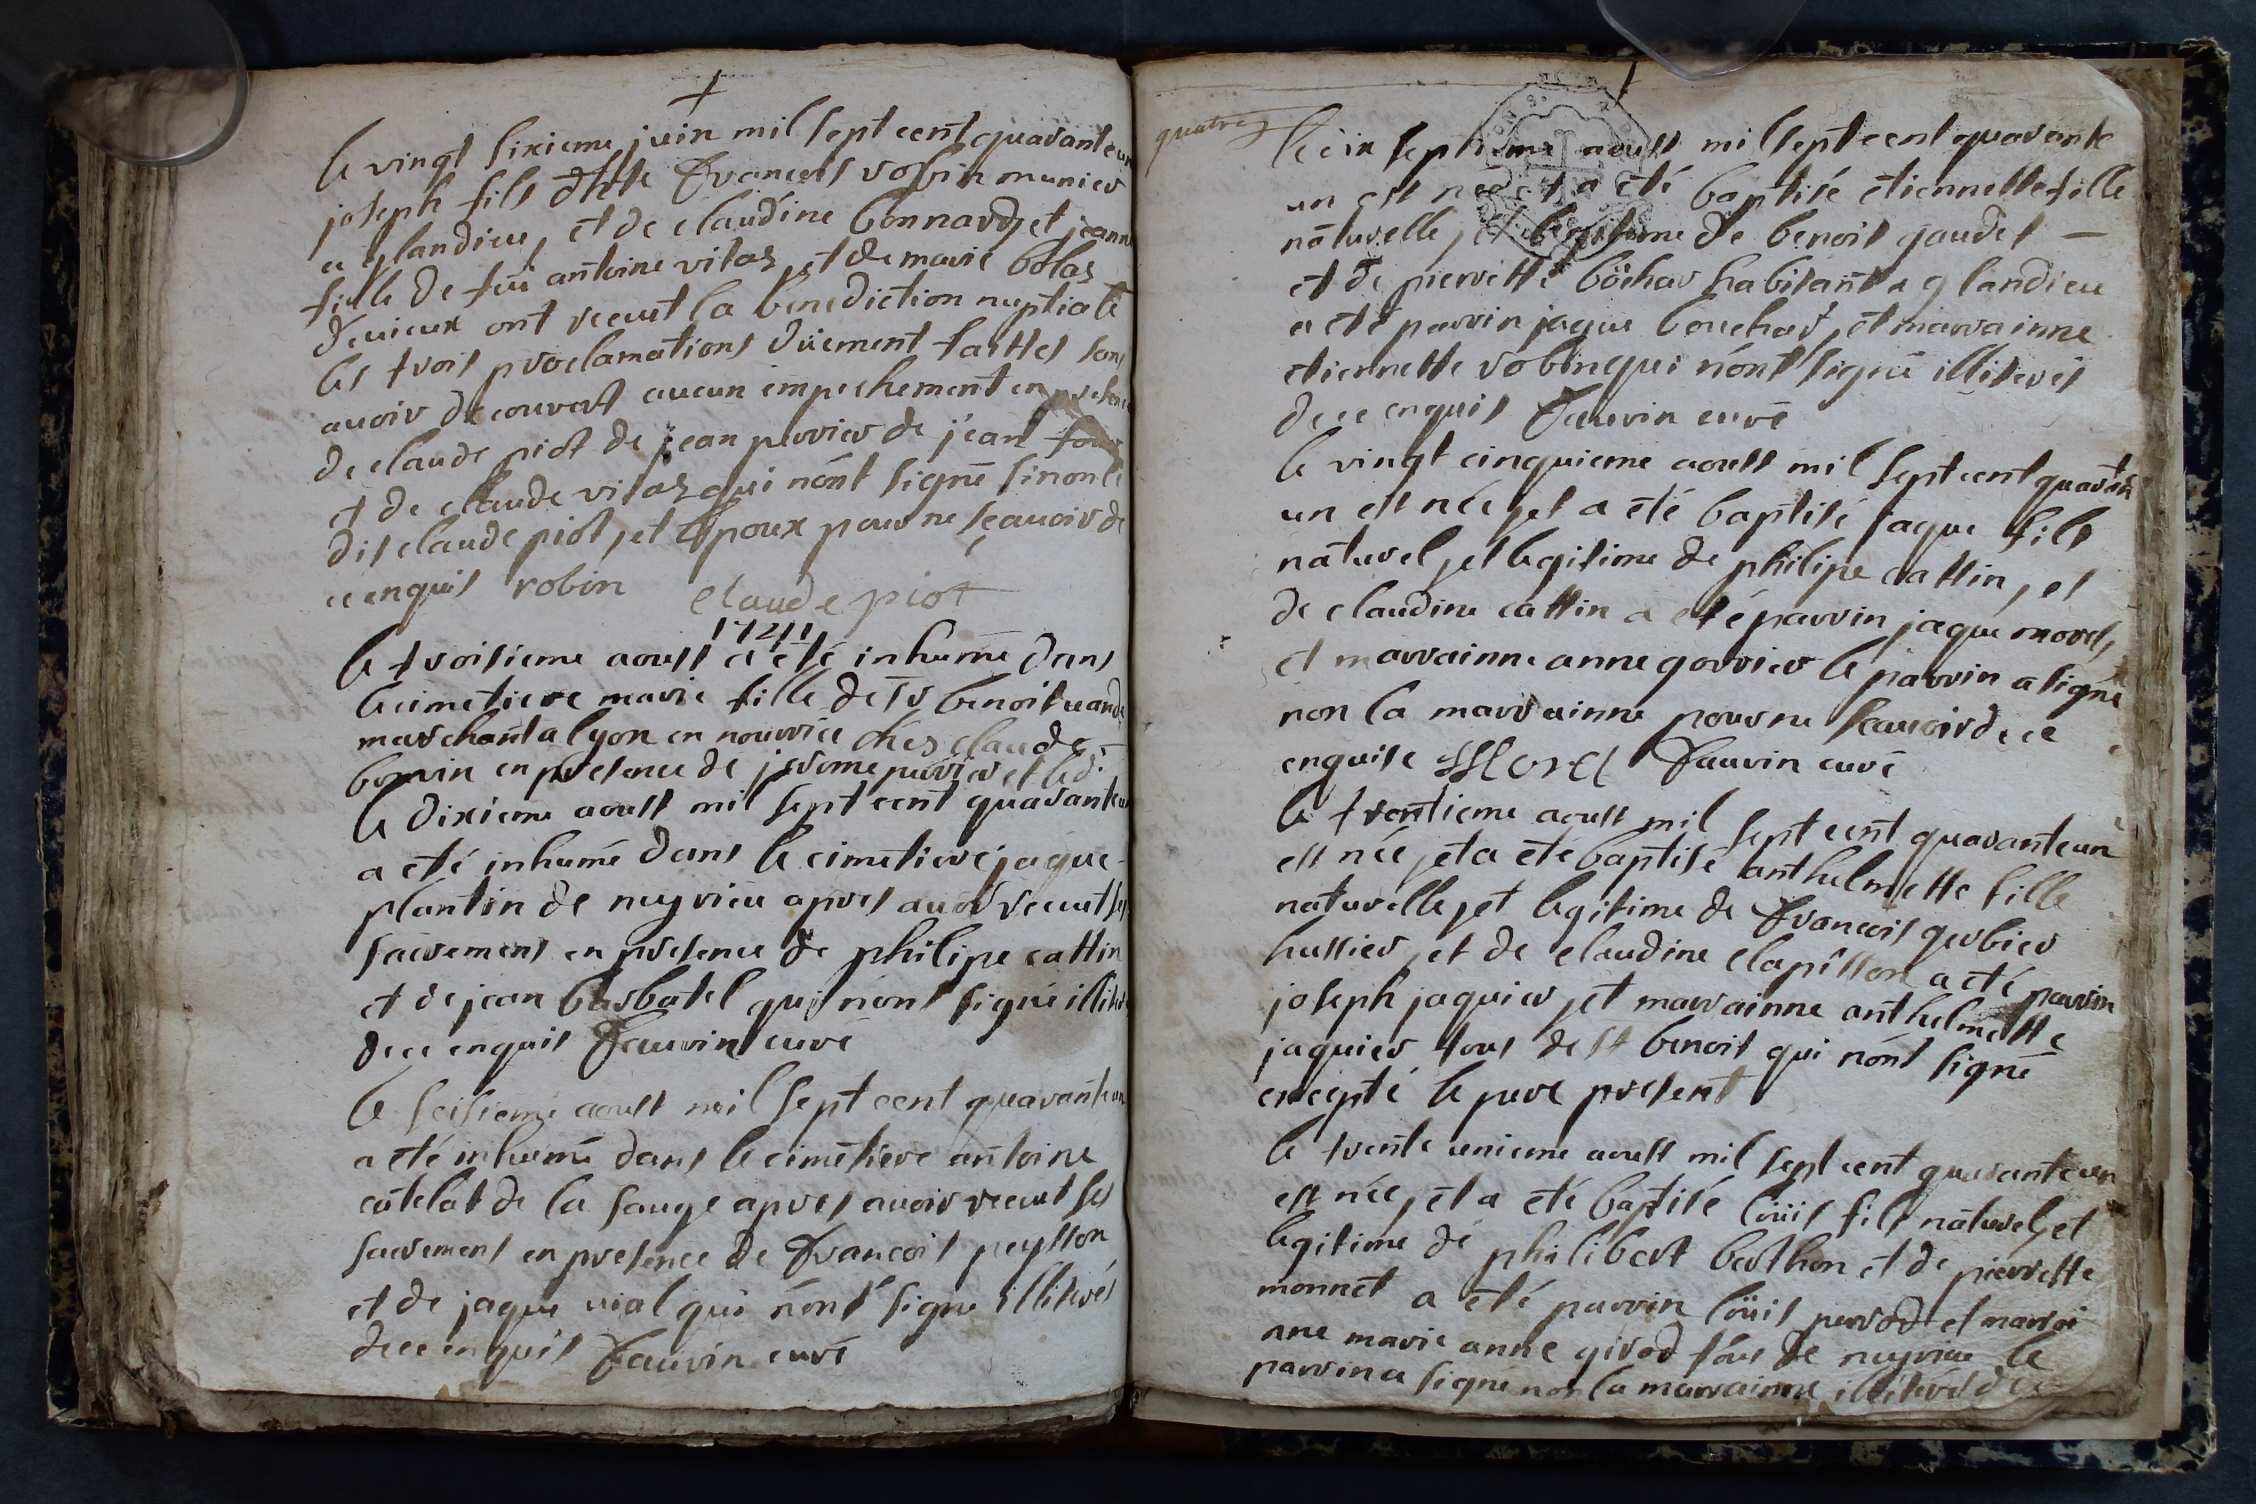 le vingt sixieme juin mil sept cent quarante un
joseph fils d'hte francois robin munier
a glandieu, et de claudine bonnard, et jeanne
fille de feü antoine vitoz, et de marie bolas
d'euieux ont recut la benediction nuptiale
les trois proclamations düement faittes sans
auoir decouvert aucun empechement en presence
de claude piot de jean perrier de jean
et de claude vitoz qui n'ont signé sinon le
dit claude piot, et Epoux pour ne sçauoir de
ce enquis robin claude piot
1741
le troisieme aoust a eté inhumé dans
le cimetiere marie fille de sr benoit
marchant a lyon en nourrice chez claude
bonvin en presence de jerome perrier et led.
le dixieme aoust mil sept cent quarante un
a eté inhumé dans le cimetiere jaque
plantin de nuyrieu apres auoir recut ses
sacrement en presence de philipe cattin
et de jean barbotel qui n'ont signé illiterés
de ce enquis fauvin curé
le seisieme aoust mil sept cent quarante un
a eté inhumé dans le cimetiere antoine
catelat de la sauge apres auoir recut ses
sacrement en presence de francois peysson
et de jaque vial qui n'ont signe illiterés
de ce enquis fauvin curé
quatre
le dix septieme aoust mil sept cent quarante
un est née, et a eté baptisé etiennette fille
naturelle, et legitime de benoit gaudet
et de pierrette böchar habitant a glandieu
a eté parrin jaque bouchard, et marrainne
etiennette robin qui n'ont signé illiterés
de ce enquis fauvin curé
le vingt cinquieme aoust mil sept cent quarante
un est née, et a eté baptisé jaque fils
naturel, et legitime de philipe cattin, et
de claudine cattin a eté parrin jaque morel,
et marrainne anne gorrier le parrin a signé
non la marrainne pour ne scauoir de ce
enquise Morel fauvin curé
le trentieme aoust mil sept cent quarante un
est née, et a eté baptisé anthelmette fille
naturelle, et legitime de francois gerbier
hussier, et de claudine clapisson a eté parrin
joseph jaquier, et marrainne anthelmette
jaquier tous de st benoit qui n'ont signé
excepté le pere present
le trente unieme aoust mil sept cent quarante un
est née, et a eté baptisé loüis fils naturel, et
legitime de philibert berthon et de pierrette
monnet a eté parrin loüis perrod et marrai
nne marie anne girod tous de nuyrieu le
parrin a signe non la marrainne illiterés de ce